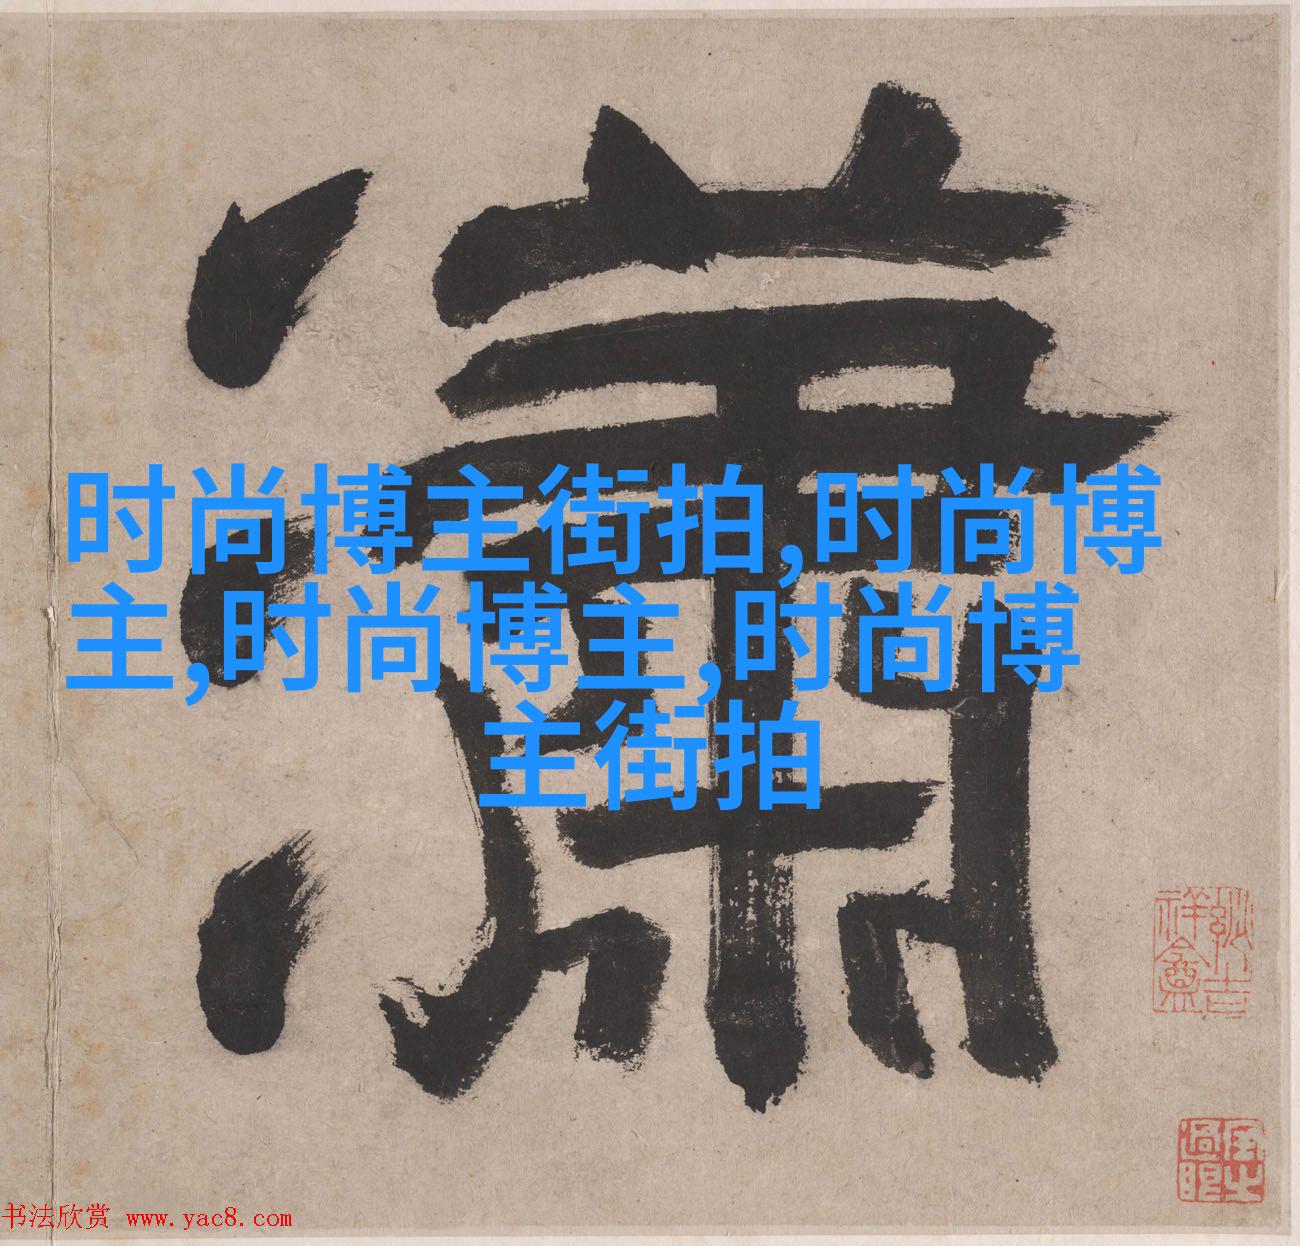 瀟
时尚博主街拍,时尚博
主,时尚博主,时尚博
主街拍
书法欣赏 www.yac8.com